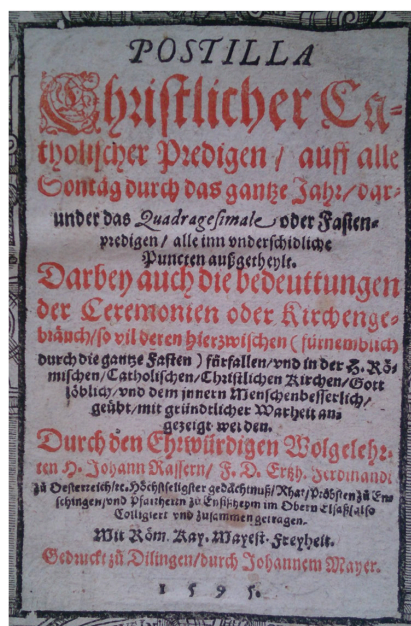 POSTILLA
Christlicher Ca-
tholischer Predigen / auff alle
Sontag durch das gantze Jahr / dar-
under das Quadragesimale oder Fasten-
predigen / alle inn vnderschidliche
Puncten außgetheylt.
Darbey auch die bedeuttungen
der Ceremonien oder Kirchenge-
bräuch / so vil deren hierzwischen ( fürnemblich
durch die gantze Fasten ) fürfallen / vnd in der H. Rö-
mischen / Catholischen / Christlichen Kirchen / Gott
löblich / vnd dem innern Menschen besserlich /
geübt / mit gründtlicher Warheit an-
gezeigt werden.
Durch den Ehrwürdigen Wolgelehr-
ten H. Johann Rassern / F. D. Ertzh. Ferdinandi
zů Oesterreich / rc. Höchstseligster gedächtnuß / Rhat / Pröbsten zů En-
schingen / vnd Pfarrherrn zů Ensißheym im Obern Elsaß / also
Colligiert vnd zusamen getragen.
Mit Röm. Kay. Mayest. Freyheit.
Gedruckt zů Dilingen / durch Johannem Mayer.
1 5 9 5.